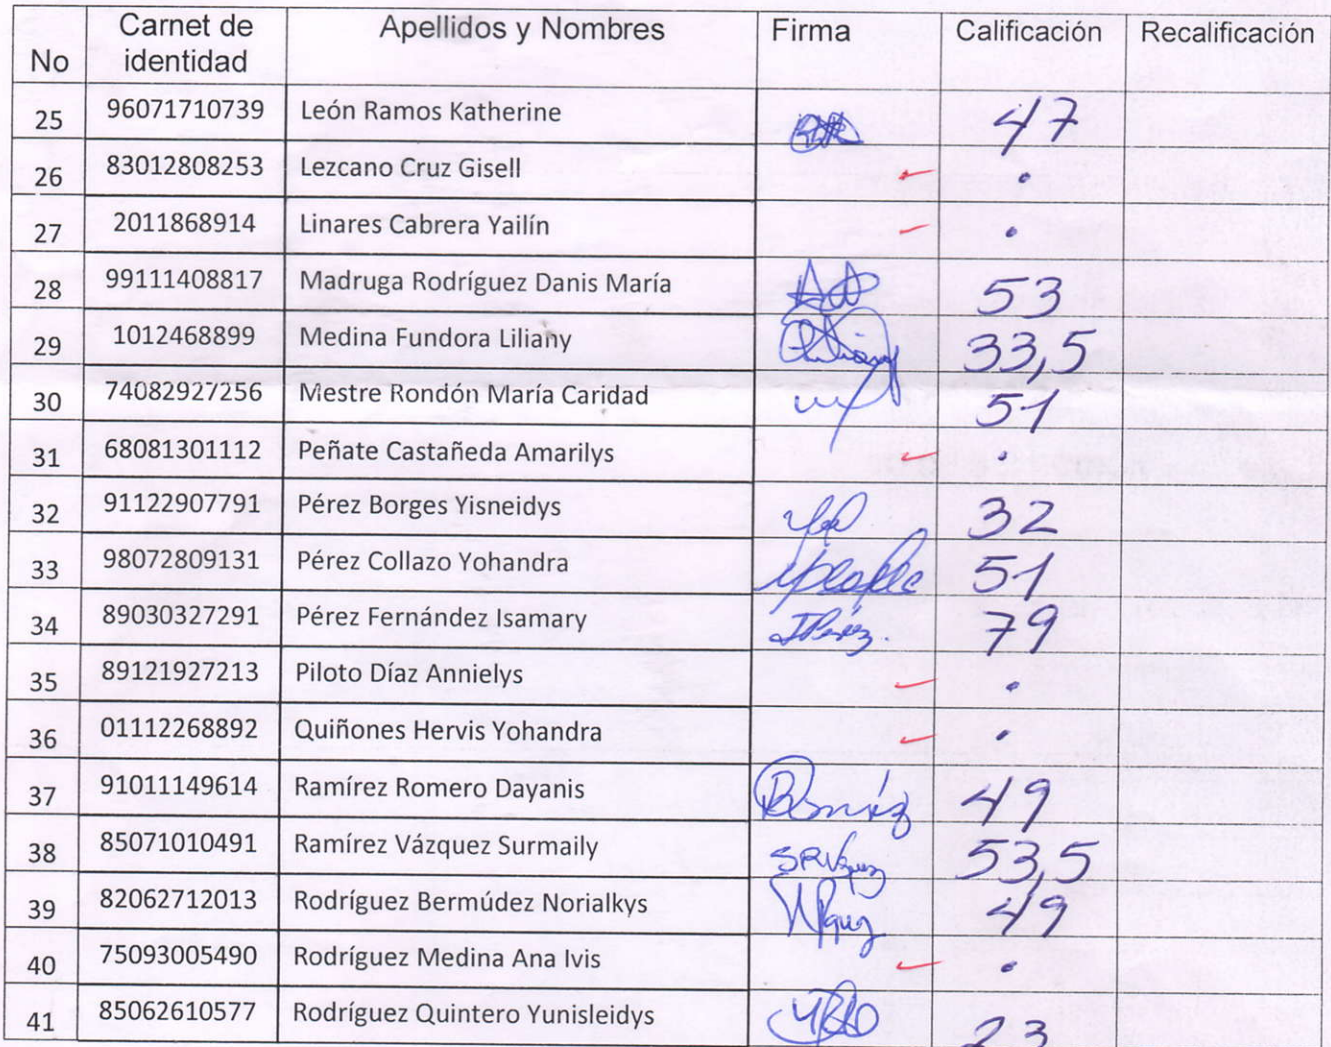 No Carnet de identidad Apellidos y Nombres Firma Calificación Recalificación
25 96071710739 León Ramos Katherine 47
26 83012808253 Lezcano Cruz Gisell .
27 2011868914 Linares Cabrera Yailín .
28 99111408817 Madruga Rodríguez Danis María 53
29 1012468899 Medina Fundora Liliany 33,5
30 74082927256 Mestre Rondón María Caridad 51
31 68081301112 Peñate Castañeda Amarilys .
32 91122907791 Pérez Borges Yisneidys 32
33 98072809131 Pérez Collazo Yohandra 51
34 89030327291 Pérez Fernández Isamary IPérez. 79
35 89121927213 Piloto Díaz Annielys .
36 01112268892 Quiñones Hervis Yohandra .
37 91011149614 Ramírez Romero Dayanis 49
38 85071010491 Ramírez Vázquez Surmaily 53,5
39 82062712013 Rodríguez Bermúdez Norialkys 49
40 75093005490 Rodríguez Medina Ana Ivis .
41 85062610577 Rodríguez Quintero Yunisleidys 23